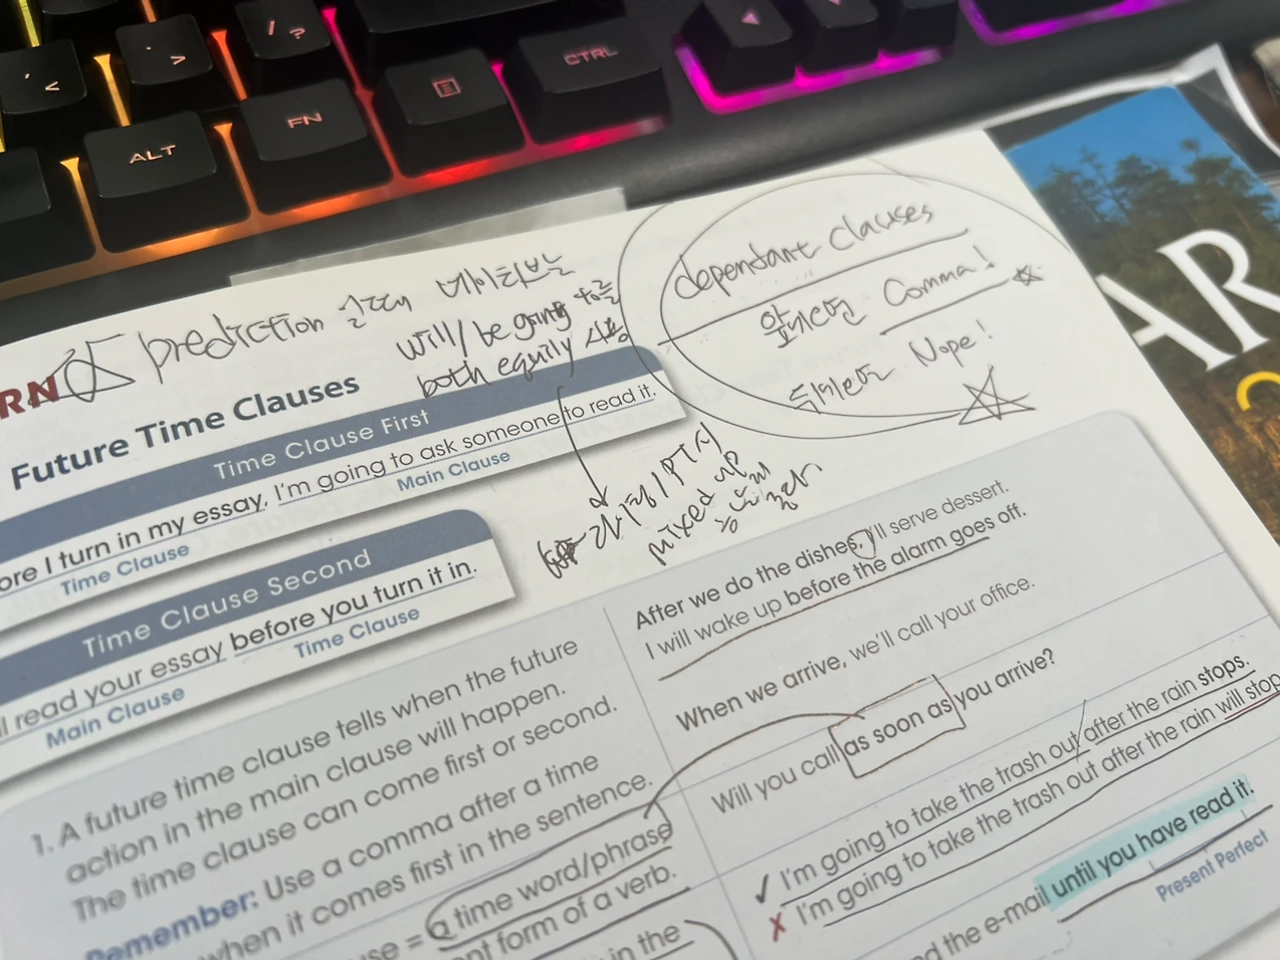 , <
. >
/ ?
ALT
FN
CTRL
prediction
will / be going to를
both equily 사용
dependant clauses
앞에오면 Comma!
뒤에오면 Nope!
mixed up
RN
AR
Future Time Clauses
Time Clause First
ore I turn in my essay, I'm going to ask someone to read it.
Time Clause
Main Clause
Time Clause Second
ll read your essay before you turn it in.
Main Clause
Time Clause
1. A future time clause tells when the future
action in the main clause will happen.
The time clause can come first or second.
Remember: Use a comma after a time
when it comes first in the sentence.
use = a time word/phrase
nt form of a verb.
in the
After we do the dishes, I'll serve dessert.
I will wake up before the alarm goes off.
When we arrive, we'll call your office.
Will you call as soon as you arrive?
✓ I'm going to take the trash out after the rain stops.
✗ I'm going to take the trash out after the rain will stop
nd the e-mail until you have read it.
Present Perfect